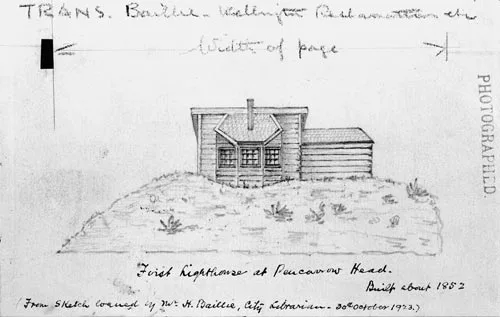 TRANS. Baillie - Wellington Reclamations etc
Width of page
PHOTOGRAPHED.
First Lighthouse at Pencarrow Head.
Built about 1852
(From Sketch loaned by Mr. H. Baillie, City Librarian - 30th October 1923.)